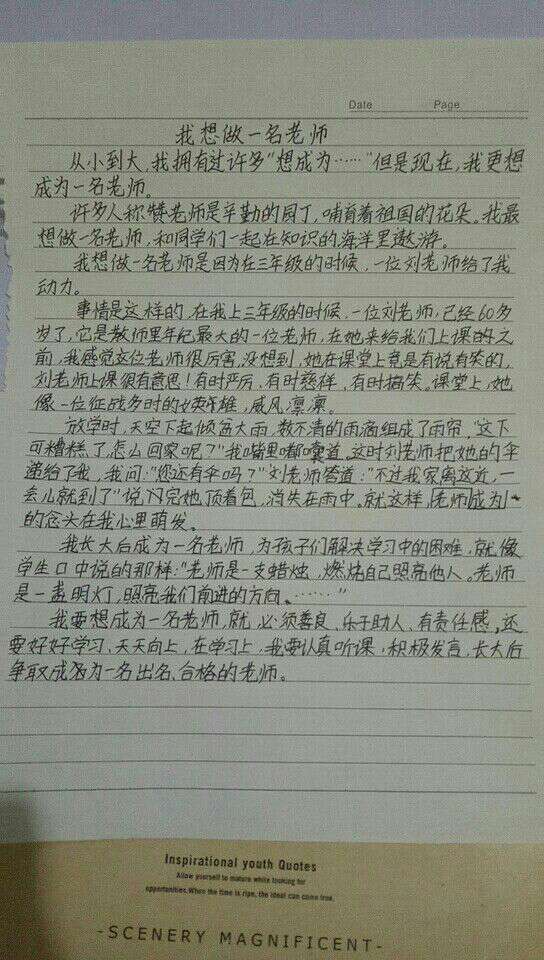 Date Page
我想做一名老师
从小到大,我拥有过许多"想成为……"但是现在,我更想
成为一名老师。
许多人称赞老师是辛勤的园丁,哺育着祖国的花朵。我最
想做一名老师,和同学们一起在知识的海洋里遨游。
我想做一名老师是因为在三年级的时候,一位刘老师给了我
动力。
事情是这样的,在我上三年级的时候,一位刘老师,已经60多
岁了,它是教师里年纪最大的一位老师,在她来给我们上课的之
前,我感觉这位老师很厉害,没想到,她在课堂上竟是有说有笑的,
刘老师上课很有意思!有时严厉,有时慈祥,有时搞笑。课堂上,她
像一位征战多时的英雄,威风凛凛。
放学时,天空下起倾盆大雨,数不清的雨滴组成了雨帘,"这下
可糟糕了,怎么回家呢?"我嘴里嘟囔道。这时刘老师把她的伞
递给了我,我问:"您还有伞吗?"刘老师答道:"不过我家离这近,一
会儿就到了"说完她顶着包,消失在雨中。就这样,老师成为
的念头在我心里萌发。
我长大后成为一名老师,为孩子们解决学习中的困难,就像
学生口中说的那样:"老师是一支蜡烛,燃烧自己照亮他人。老师
是一盏明灯,照亮我们前进的方向。……"
我要想成为一名老师,就必须善良,乐于助人,有责任感,还
要好好学习,天天向上,在学习上,我要认真听课,积极发言,长大后
争取成为一名出名、合格的老师。
Inspirational youth Quotes
Allow yourself to mature while looking for
opportunities.When the time is ripe, the ideal can come true.
-SCENERY MAGNIFICENT-